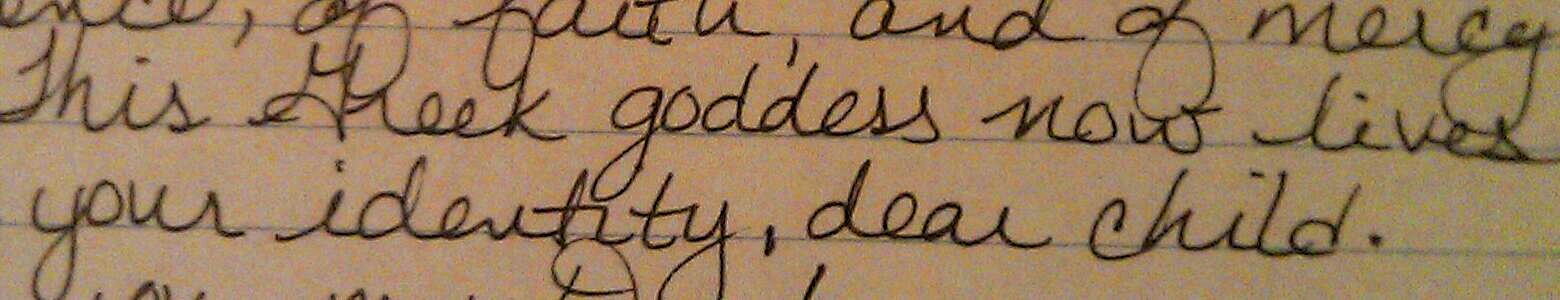 of faith, and of mercy
This Greek goddess now lives
your identity, dear child.